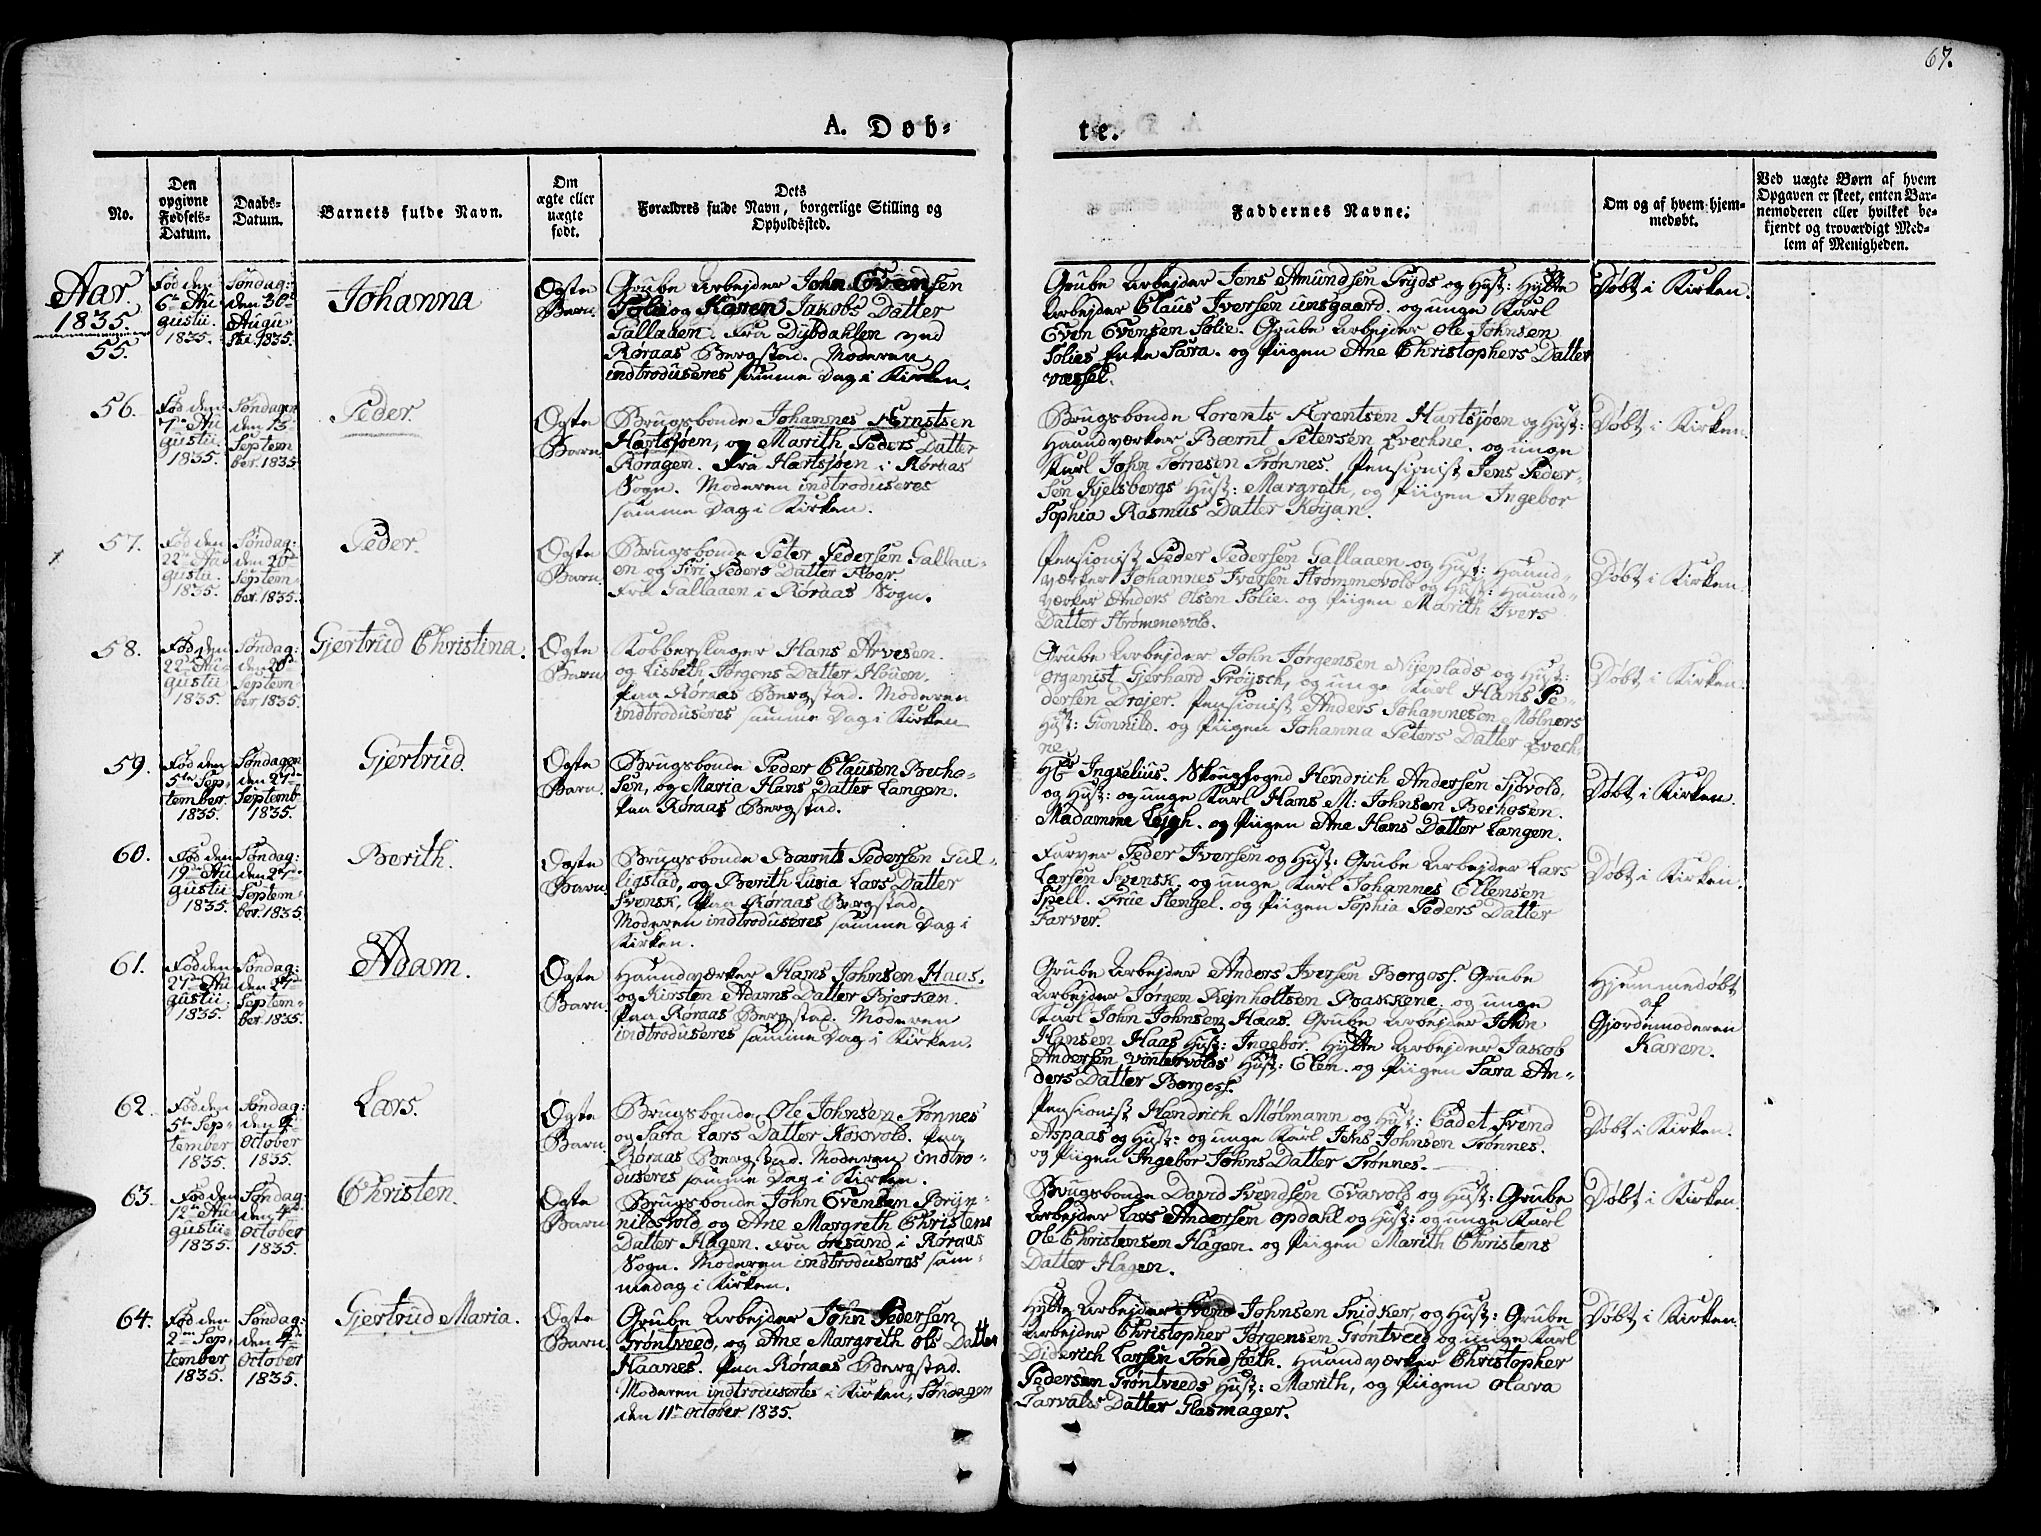 67.
A. Døb-
te.
No.
Den opgivne Fødsels-Datum.
Daabs-Datum.
Barnets fulde Navn.
Om ægte eller uægte født.
Dets Forældres fulde Navn, borgerlige Stilling og Opholdssted.
Faddernes Navne.
Om og af hvem hjem-medøbt.
Ved uægte Børn af hvem Opgaven er skeet, enten Bar-nemoderen eller hvilket be-kjendt og troværdigt Med-lem af Menigheden.
Aar
1835.
55.
Fød den
6te Au
gustii
1835.
Søndag:
den 30te
Augu
sti 1835.
Johanna
Ægte
Barn
Grube Arbejder John Evensen
Solie og Karen Jakobs Datter
Gallaaen. Fra Dybdahlen ved
Røraas Bergstad. Moderen
indtroduseres samme Dag i Kirken.
Grube Arbejder Jens Amundsen Gryds og Hust: Hytte
Arbejder Claus Iversen Unsgaard. og unge Karl
Even Evensen Solie. Grube Arbejder Ole Johnsen
Solies Enke Sara. og Piigen Ane Christophers Datter
Døbt i Kirken.
56.
Fød den
7de Au
gustii
1835.
Søndagen
den 13
Septem
ber. 1835
Peder.
Ægte
Barn
Brugsbonde Johannes Ærnstsen
Hartsjøen, og Marith Peders Datter
Røragen. Fra Hartsjøen i Røraas
Sogn. Moderen indtroduseres
samme Dag i Kirken.
Brugsbonde Lorents Ærentsen Hartsjøen og Hust:
Haandværker Bærnt Petersen Evechne. og unge
Karl John Tørresen Trønnes. Pensionist Jens Peder-
sen Kjelsbergs Hust: Margreth, og Piigen Ingebor
Sophia Rasmus Datter Kojan.
Døbt i Kirken.
57.
Fød den
22de Au
gustii.
1835.
Søndag:
den 20de
Septem-
ber. 1835.
Peder.
Ægte
Barn
Brugsbonde Peter Pedersen Gallaa-
en og Siri Peders Datter Aber.
Fra Gallaaen i Røraas Sogn.
Pensionist Peder Pedersen Gallaaen og Hust: Haand-
værker Johannes Iversen Strømmevold og Hust: Haand-
værker Anders Olsen Solie. og Piigen Marith Ivers
Datter Strømmevold.
Døbt i Kirken.
58.
Fød den
22de Au-
gustii
1835.
Søndag:
den 20de
Septem-
ber 1835.
Gjertrud Christina.
Ægte
Barn
Kobberslager Hans Arvesen.
og Lisbeth Jørgens Datter Houen.
Paa Røraas Bergstad. Moderen
indtroduseres samme Dag i Kirken
Grube Arbejder John Jørgensen Nijeplads og Hust:
Organist Gjerhard Frøysch, og unge Karl Hans Pe-
dersen Drejer. Pensionist Anders Johannesen Mølners
Hust: Gunnild. og Piigen Johanna Peters Datter Evech-
ne
Døbt i Kirken.
59.
Fød den
5te Sep-
tember.
1835.
Søndagen
den 27de
Septemb
1835.
Gjertrud.
Ægte
Barn.
Brugsbonde Peder Clausen Becho-
sen, og Maria Hans Datter Langen.
Paa Røraas Bergstad.
Hr Ingselius. Skougfoged Hendrich Andersen Sjøvold.
og Hust: og unge Karl Hans M: Johnsen Bechosen.
Madamme Lejgh. og Piigen Ane Hans Datter Langen.
Døbt i Kirken.
60.
Fød den
19de Au
gustii
1835.
Søndag:
den 27de
Septem-
ber. 1835.
Berith.
Ægte
Barn
Brugsbonde Bærnt Pedersen Gul-
ligstad, og Berith Lusia Lars Datter
Svensk, Paa Røraas Bergstad.
Moderen indtroduseres samme Dag i
Kirken.
Farver Peder Iversen og Hust: Grube Arbejder Lars
Larsen Svensk, og unge Karl Johannes Ellensen
Spell. Frue Stengel. og Piigen Sophia Peders Datter
Farver.
Døbt i Kirken.
61.
Fød den
27de Au
gustii.
1835.
Søndag:
den 27de
Septem-
ber. 1835.
Adam.
Ægte
Barn.
Haandværker Hans Johnsen Haas.
og Kirsten Adams Datter Bjerken.
Paa Røraas Bergstad. Moderen
indtroduseres samme Dag i Kirken.
Grube Arbejder Anders Iversen Borgos. Grube
Arbejder Jørgen Rejnholtsen Bakkene. og unge
Karl John Johnsen Haas. Grube Arbejder John
Hansen Haas Hust: Ingebor. Hytte Arbejder Jakob
Andersen Vintervolds Hust: Elen. og Piigen Sara An-
ders Datter Borgos.
Hjemmedøbt
af
Gjordemoderen
Karen.
62.
Fød den
5te Sep-
tember
1835.
Søndag:
den 4de
October
1835.
Lars.
Ægte
Barn.
Brugsbonde Ole Johnsen Trønnes
og Sara Lars Datter Kosvold. Paa
Røraas Bergstad. Moderen indtro-
duseres samme Dag i Kirken.
Pensionist Hendrich Mølmann og Hust: Cadet Svend
Aspaas og Hust: og unge Karl Jens Johnsen Trønnes.
og Piigen Ingebor Johns Datter Trønnes.
Døbt i Kirken.
63.
Fød den
12te Au
gustii
1835.
Søndag:
den 4de
October
1835.
Christen.
Ægte
Barn
Brugsbonde John Evensen Bryn-
nildsvold, og Ane Margreth Christens
Datter Hagen. Fra Øresund i Røraas
Sogn. Moderen indtroduseres sam-
medag i Kirken.
Brugsbonde David Svendsen Evavold og Hust: Grube
Arbejder Lars Andersen Opdahl og Hust: og unge Karl
Ole Christensen Hagen. og Piigen Marith Christens
Datter Hagen.
Døbt i Kirken.
64.
Fød den
2den Sep-
tember
1835.
Søndag:
den 4de
October
1835.
Gjertrud Maria.
Ægte
Barn.
Grube Arbejder John Pedersen
Grøntveed, og Ane Margreth Ols Datter
Haanes. Paa Røraas Bergstad.
Moderen indtrodusertes i Kirken, Søndagen
den 11te October 1835.
Hytte Arbejder Svend Johnsen Snidker, og Hust: Grube
Arbejder Christopher Jørgensen Grøntveed og unge Karl
Diderich Larsen Tøndsteth. Haandværker Christopher
Pedersen Grøntveeds Hust: Marith, og Piigen Olava
Tarvalds Datter Glasmager.
Døbt i Kirken.